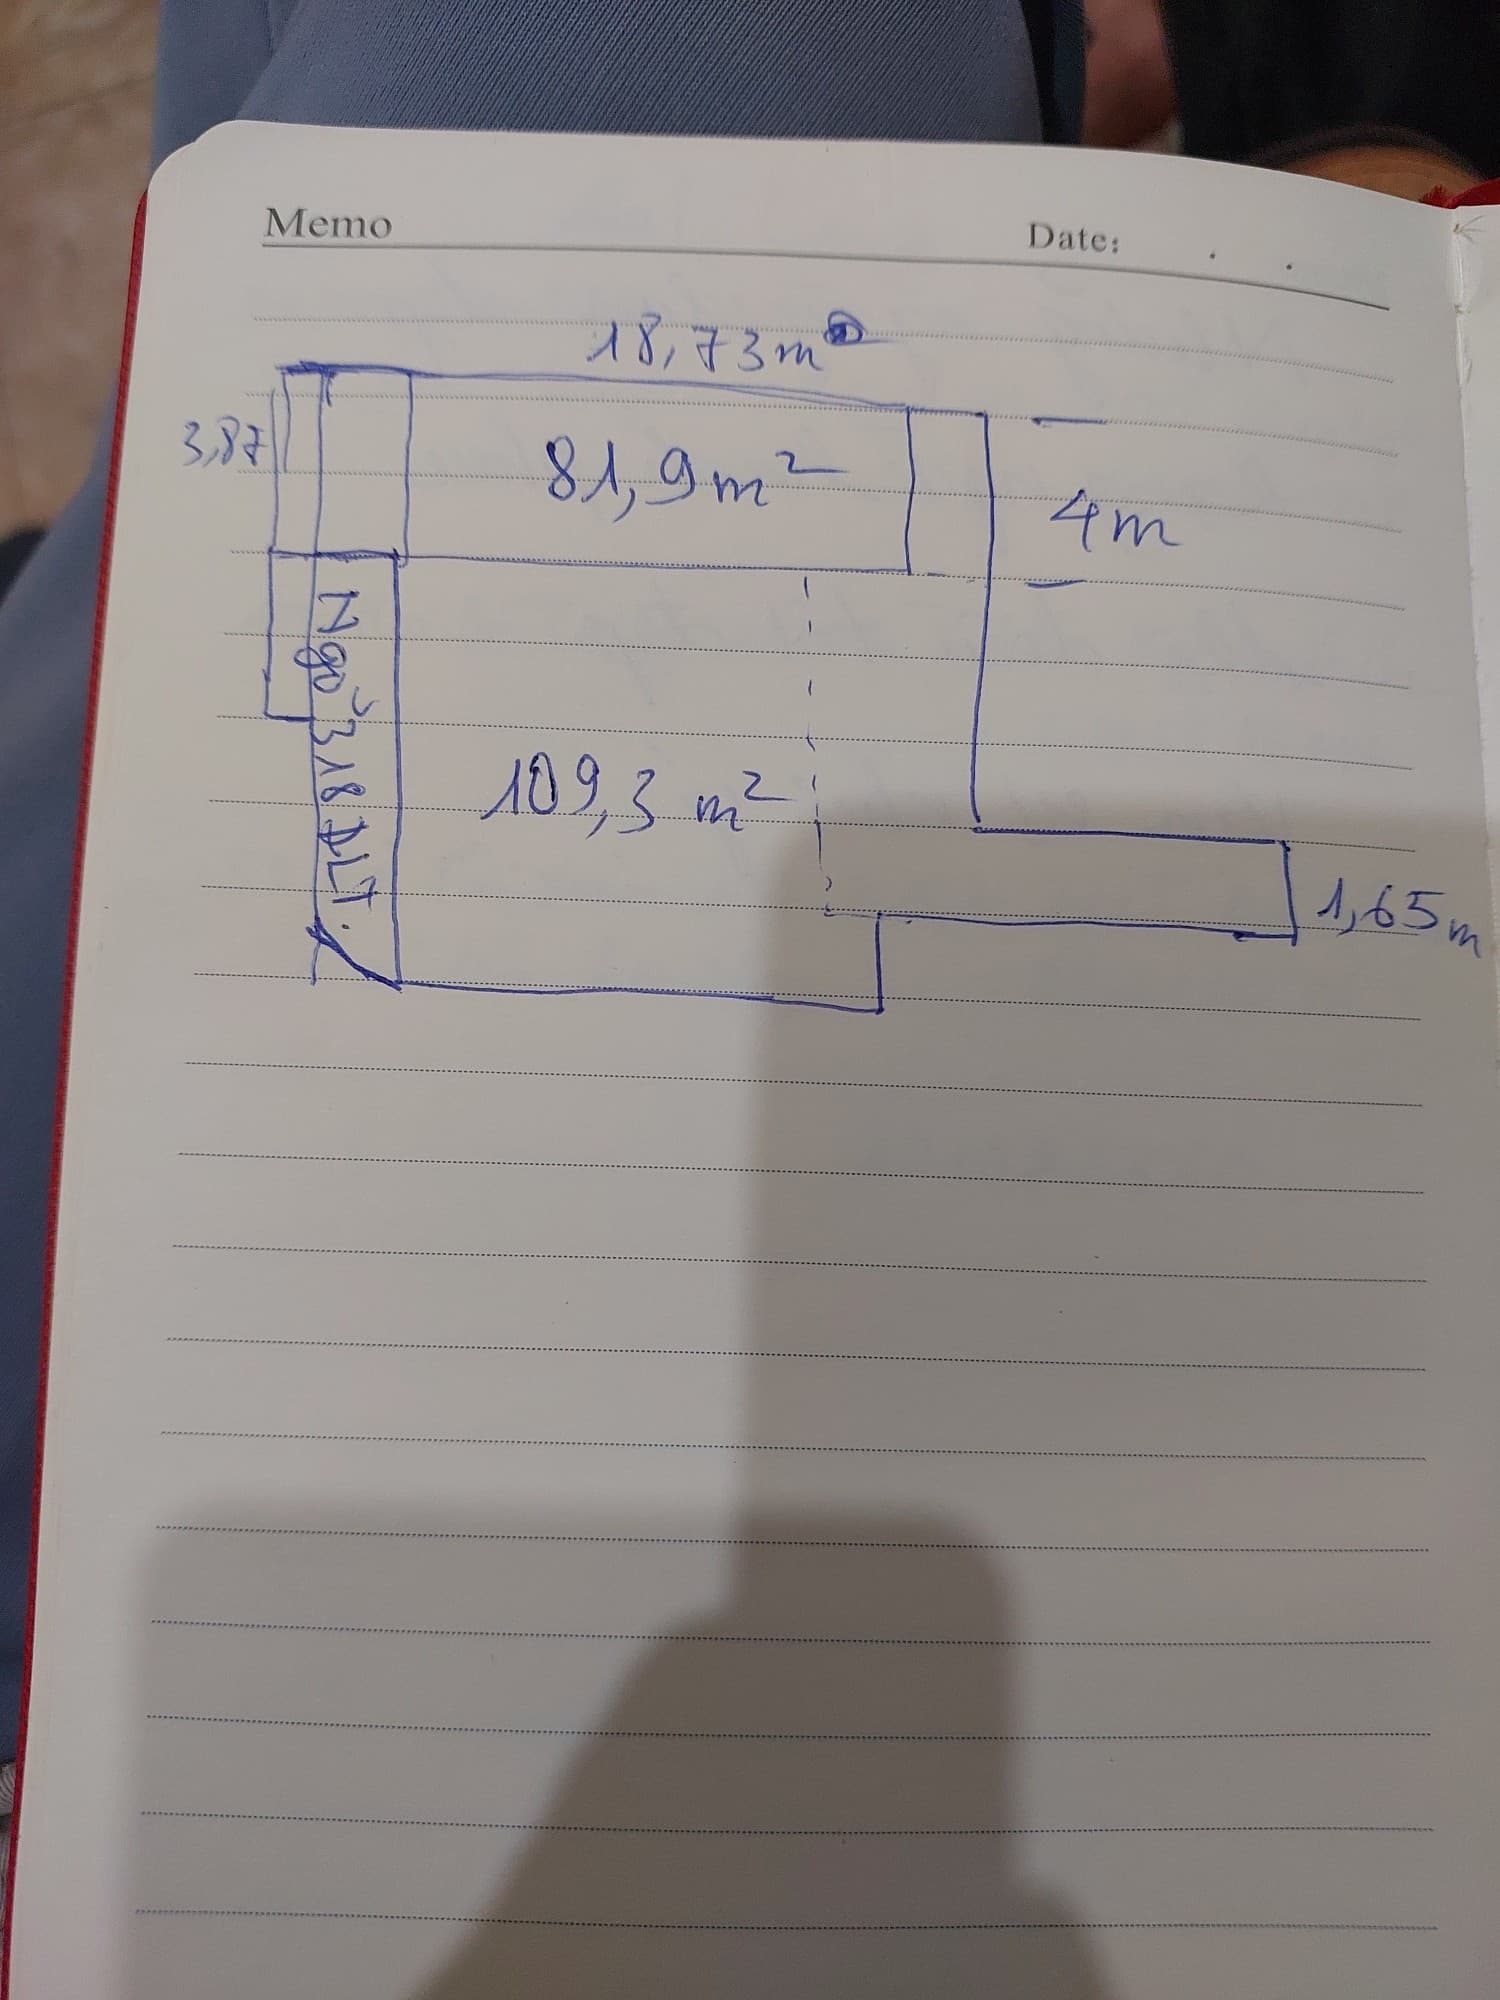 Memo
Date: . .
18,73m
3,87
81,9m²
4m
Ngõ 318 ĐLT.
109,3 m²
1,65m